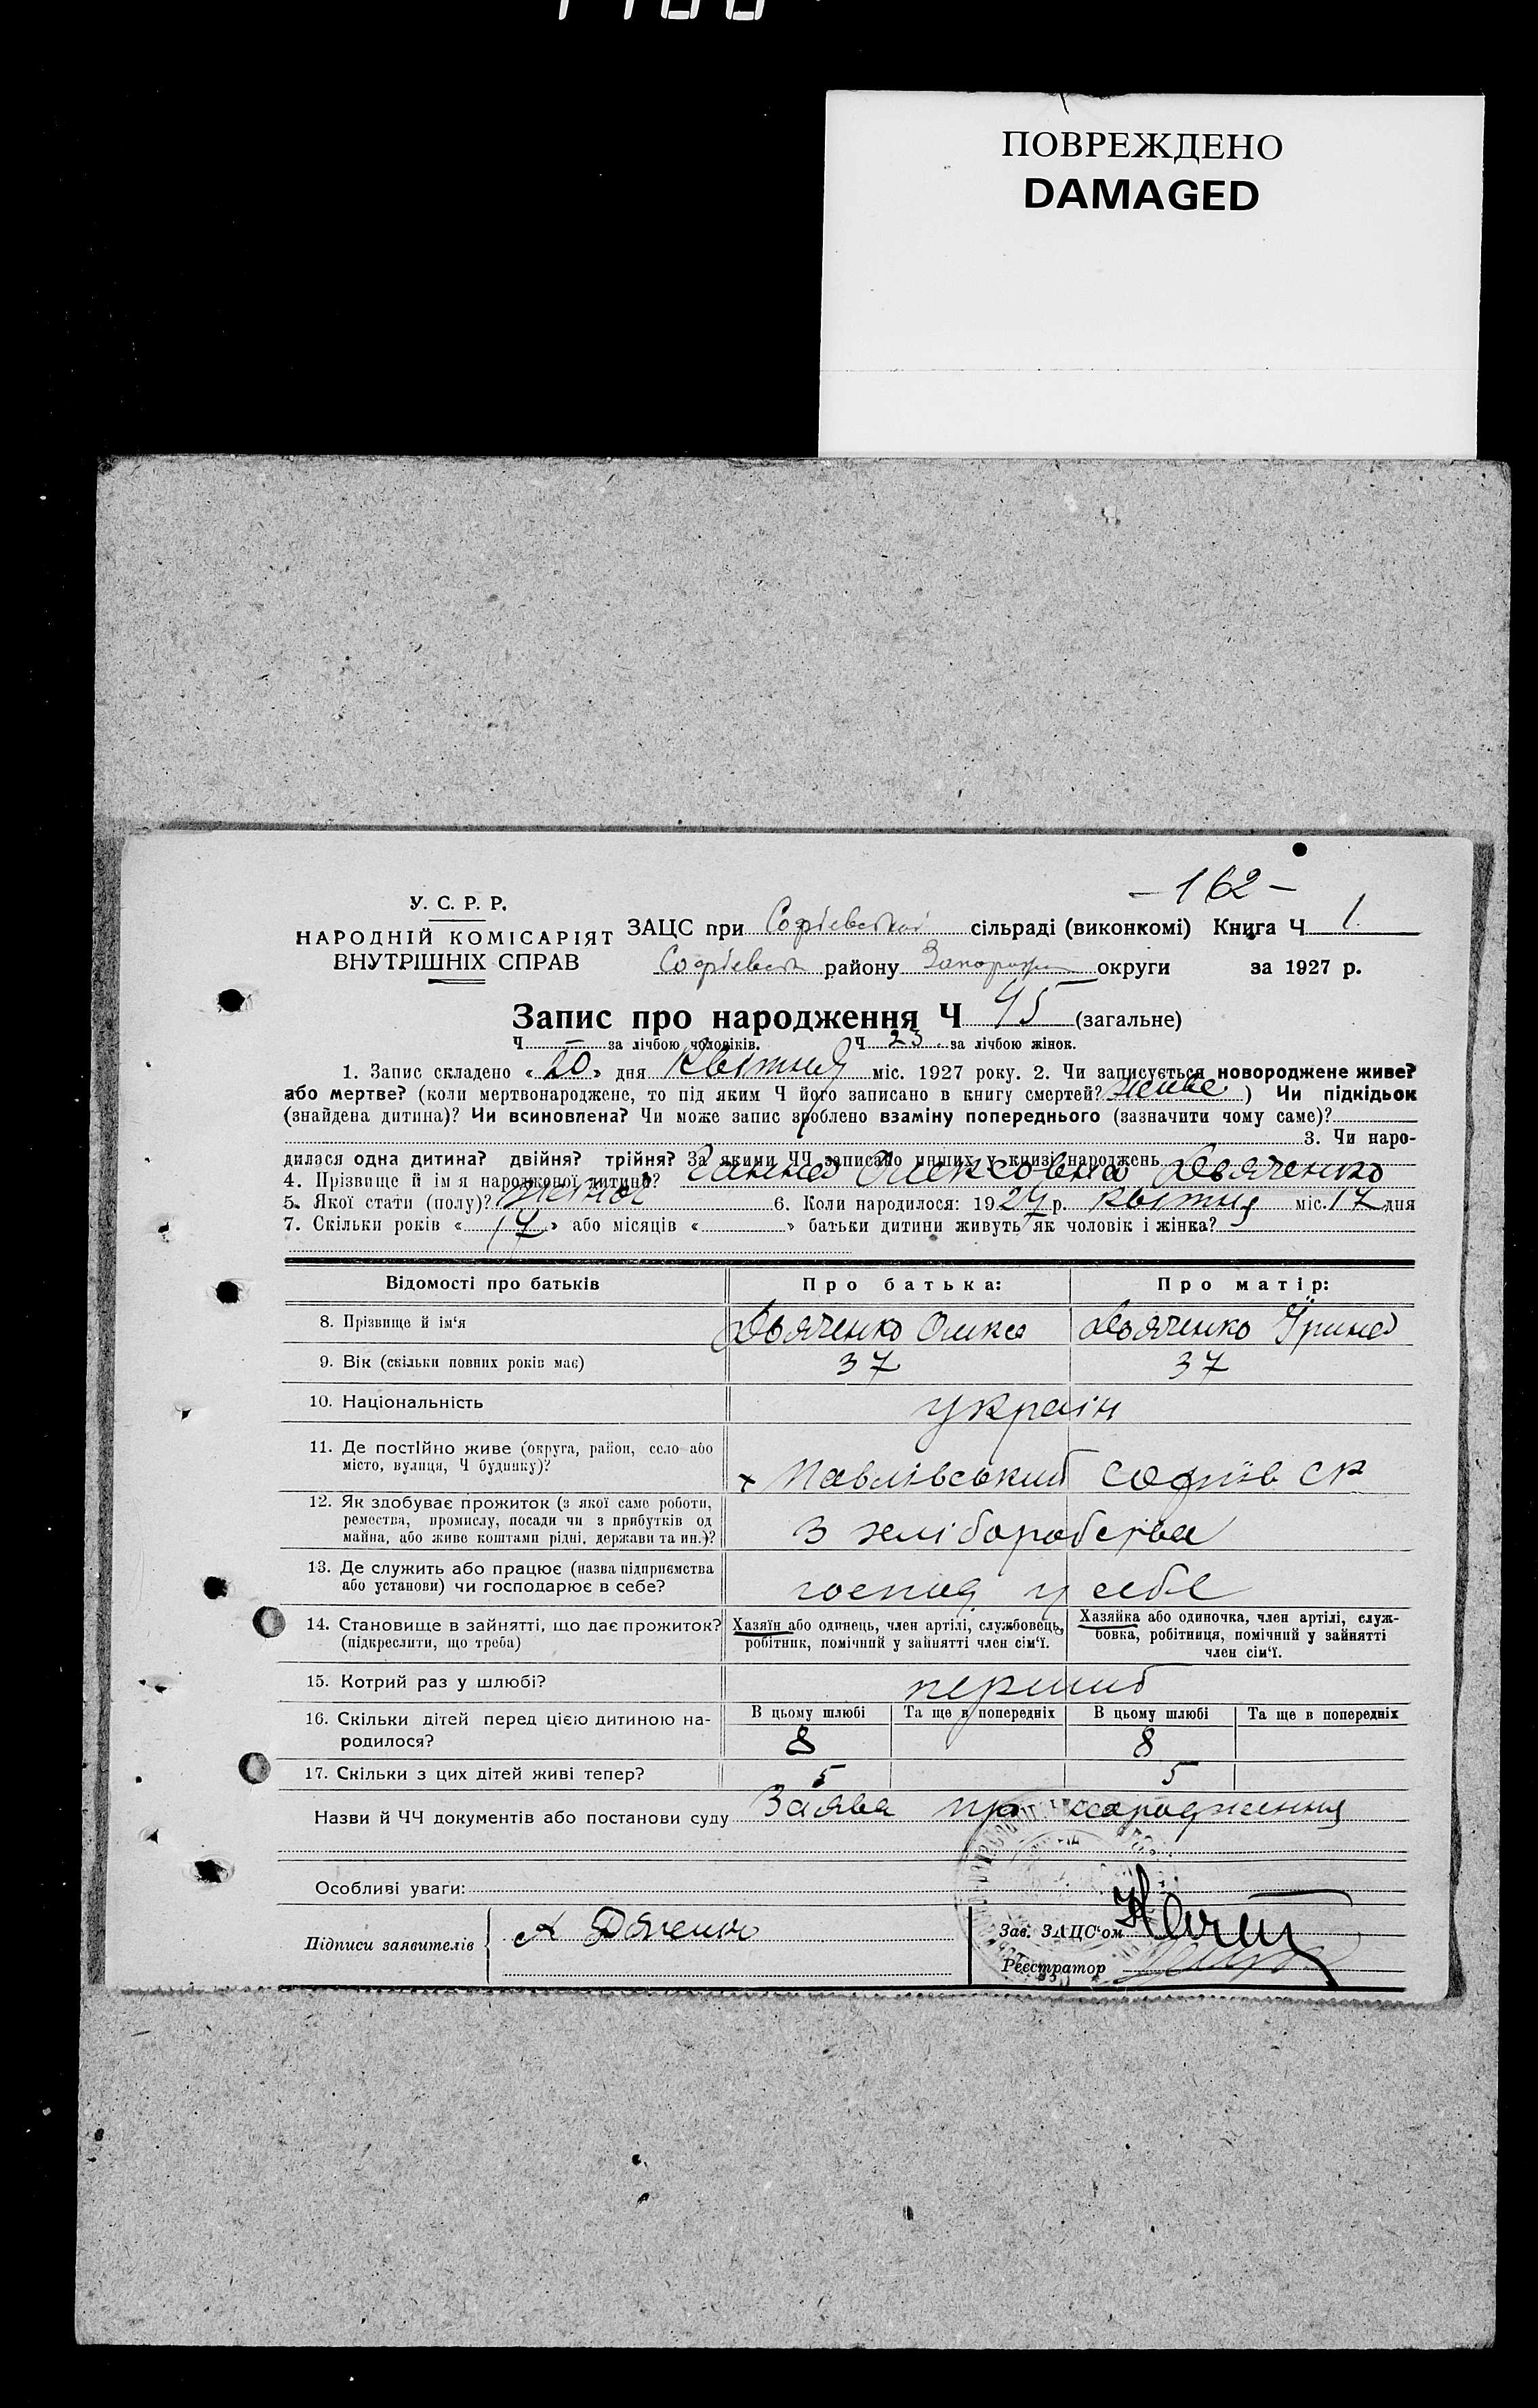 ПОВРЕЖДЕНО
DAMAGED
- 162 -
У. С. Р. Р.
НАРОДНІЙ КОМІСАРІЯТ
ВНУТРІШНІХ СПРАВ
ЗАЦС при Софіевській сільраді (виконкомі) Книга Ч 1.
Софіевськ району Запоріжж округи за 1927 р.
Запис про народження Ч 45 (загальне)
Ч — за лічбою чоловіків. Ч 23 за лічбою жінок.
1. Запис складено « 20 » дня Квітня міс. 1927 року. 2. Чи записується новороджене живе?
або мертве? (коли мертвонароджене, то під яким Ч його записано в книгу смертей? живе ) Чи підкідьок
(знайдена дитина)? Чи всиновлена? Чи може запис зроблено взаміну попереднього (зазначити чому саме)?
3. Чи наро-
дилася одна дитина? двійня? трійня? За якими ЧЧ записано инших у книзі народжень
4. Прізвище й ім я народженої дитини? Ганна Олексовна Дьяченко
5. Якої стати (полу)? жіноч 6. Коли народилося: 1927 р. Квітня міс. 17 дня
7. Скільки років « 17 » або місяців « » батьки дитини живуть як чоловік і жінка?
Відомості про батьків Про батька: Про матір:
8. Прізвище й ім‘я Дьяченко Олекса Дьяченко Ірина
9. Вік (скільки повних років має) 37 37
10. Національність україн
11. Де постійно живе (округа, район, село або
місто, вулиця, Ч будинку)? х Павлівський Софіїв СР
12. Як здобуває прожиток (з якої саме роботи,
ремества, промислу, посади чи з прибутків од
майна, або живе коштами рідні, держави та ин.)? З хліборобства
13. Де служить або працює (назва підприємства
або установи) чи господарює в себе? господ у себе
14. Становище в зайнятті, що дає прожиток?
(підкреслити, що треба)
Хазяїн або одинець, член артілі, службовець,
робітник, помічний у зайнятті член сім‘ї.
Хазяйка або одиночка, член артілі, служ-
бовка, робітниця, помічний у зайнятті
член сім‘ї.
15. Котрий раз у шлюбі? перший
16. Скільки дітей перед цією дитиною на-
родилося?
В цьому шлюбі Та ще в попередніх В цьому шлюбі Та ще в попередніх
8 8
17. Скільки з цих дітей живі тепер? 5 5
Назви й ЧЧ документів або постанови суду Заява про народження
Особливі уваги:
Підписи заявителів А Дяченко
Зав. ЗАЦС‘ом
Реєстратор